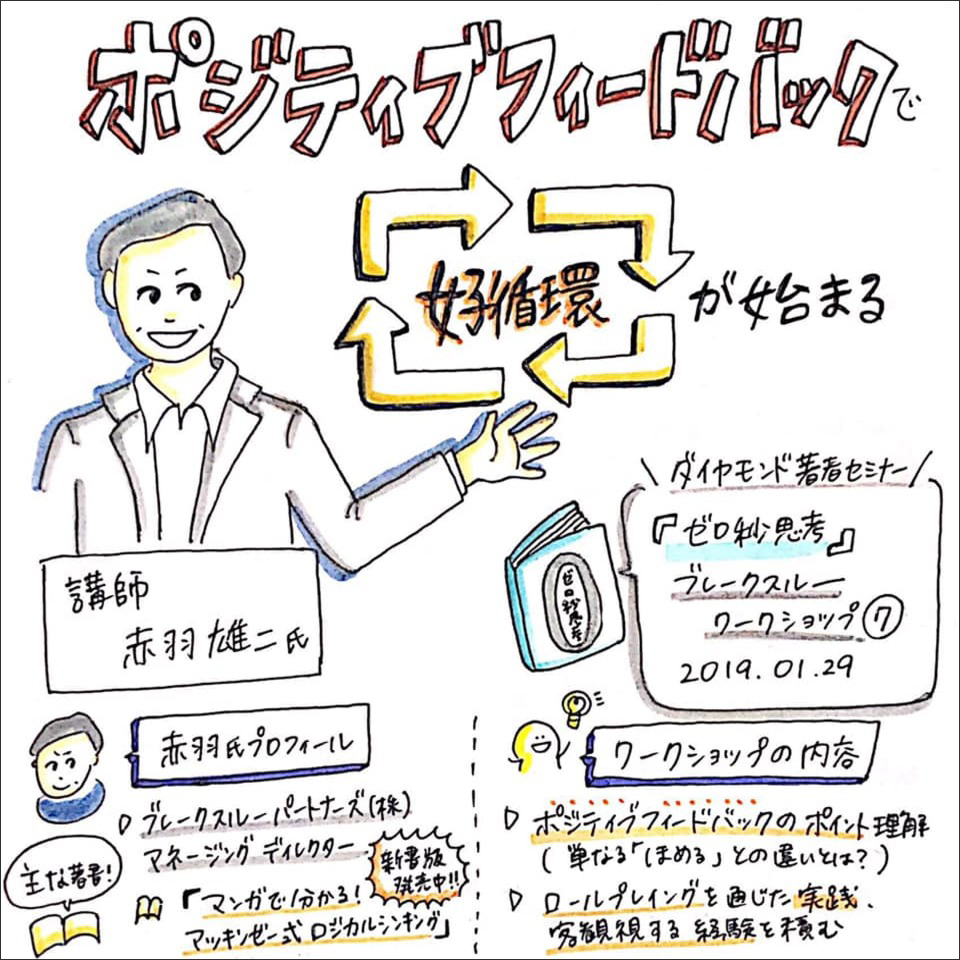 ポジティブフィードバックで
好循環が始まる
講師
赤羽雄二氏
ダイヤモンド著者セミナー
『ゼロ秒思考』
ブレークスルー
ワークショップ⑦
2019.01.29
ゼロ秒思考
赤羽氏プロフィール
ブレークスルーパートナーズ(株)
マネージングディレクター
主な著書!
新書版
発売中!!
「マンガで分かる!
マッキンゼー式ロジカルシンキング」
ワークショップの内容
ポジティブフィードバックのポイント理解
(単なる「ほめる」との違いとは?)
ロールプレイングを通じた実践、
客観視する経験を積む